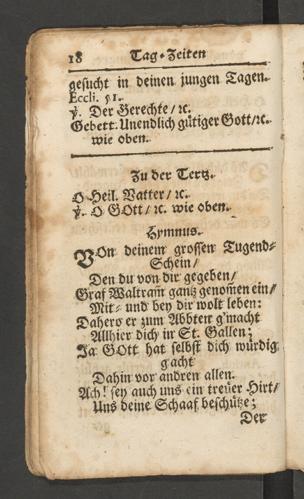 18 Tag-Zeiten
gesucht in deinen jungen Tagen.
Eccli. 51.
℣. Der Gerechte / ꝛc.
Gebett. Unendlich gütiger Gott/ꝛc.
wie oben.
Zu der Tertz.
O Heil. Vatter / ꝛc.
℣. O GOtt / ꝛc. wie oben.
Hymnus.
VOn deinem grossen Tugend-
Schein/
Den du von dir gegeben/
Graf Waltram̃ gantz genom̃en ein/
Mit- und bey dir wolt leben:
Dahero er zum Abbten g'macht
Allhier dich in St. Gallen;
Ja GOtt hat selbst dich würdig
g'acht
Dahin vor andren allen.
Ach! sey auch uns ein treüer Hirt/
Uns deine Schaaf beschütze;
Der